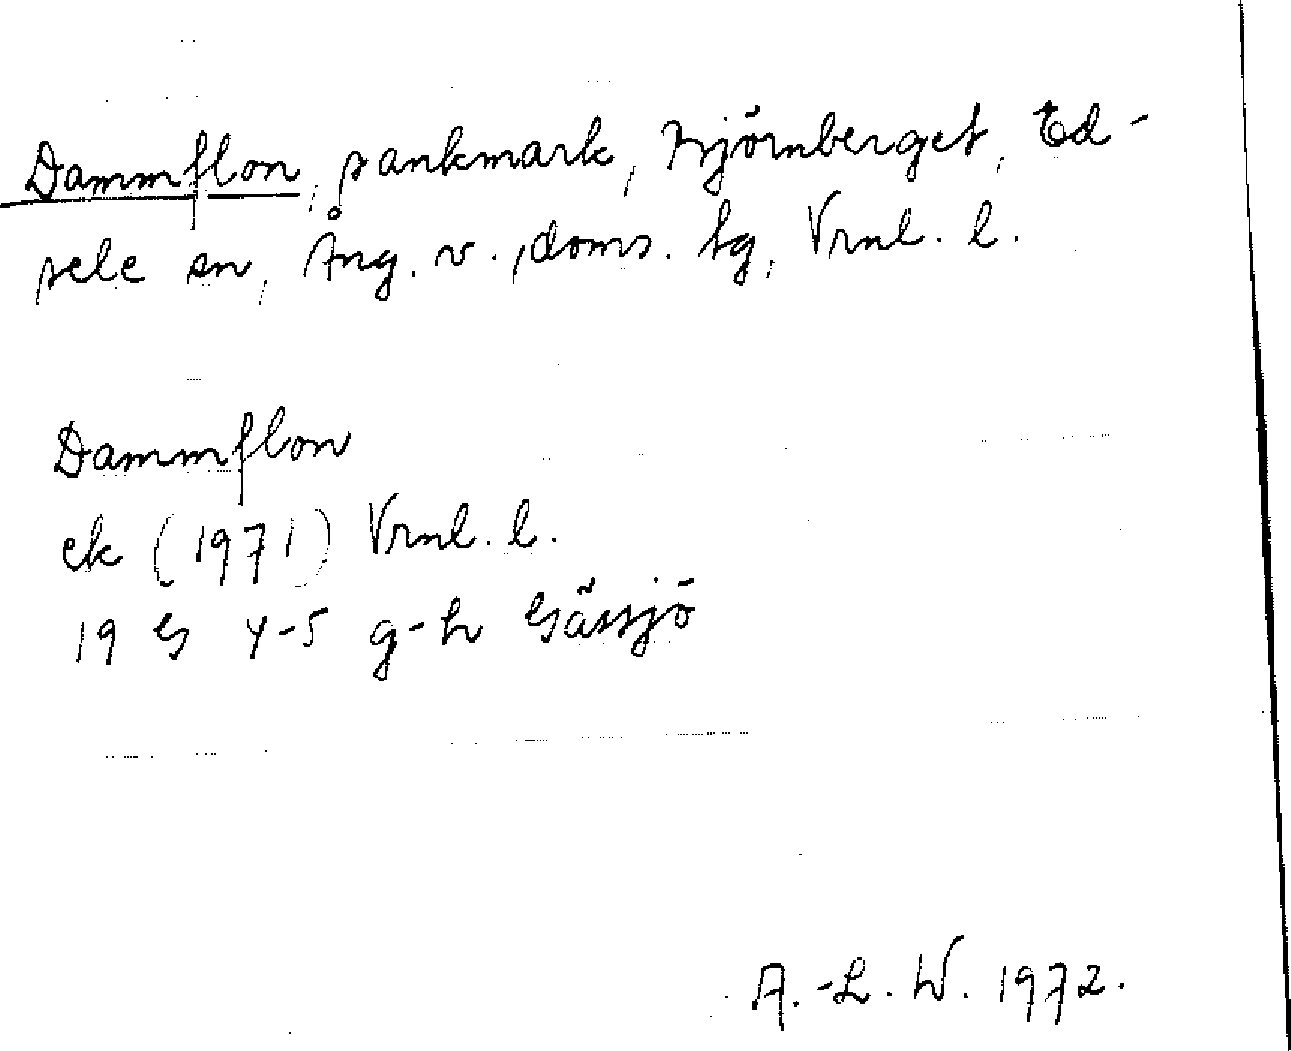 Dammflon, sankmark, Björnberget, Ed-
sele sn, Ång. v., doms. tg, Vrnl. l.
Dammflon
ek (1971) Vrnl. l.
19 G 4-5 g-h Gåssjö
A.-L. W. 1972.